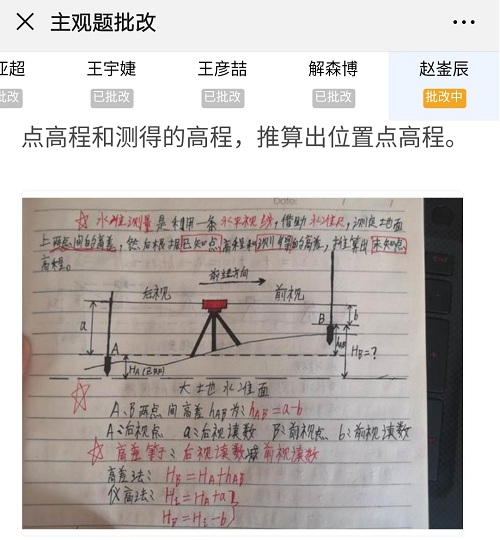 主观题批改
亚超 王宇婕 王彦喆 解森博 赵崟辰
批改 已批改 已批改 已批改 批改中
点高程和测得的高程，推算出位置点高程。
Date:
☆ 水准测量是利用一条水平视线，借助水准尺，测定地面
上两点间的高差，然后根据已知点高程和测得的高差，推算出未知点
高程。
前进方向
后视 前视
a b
B
A hAB HB=?
HA(已知)
大地水准面
A、B两点间高差hAB为：hAB=a-b
A：后视点 a：后视读数 B：前视点 b：前视读数
☆ 高差等于：后视读数减前视读数
高差法：HB=HA+hAB
仪高法：Hi=HA+a
HB=Hi-b